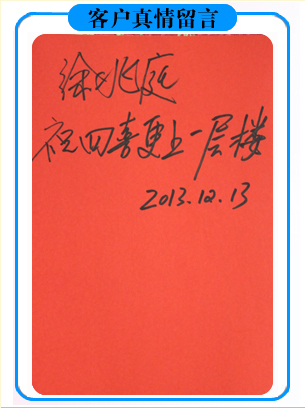 客户真情留言
徐兆庭
祝四喜更上一层楼
2013.12.13